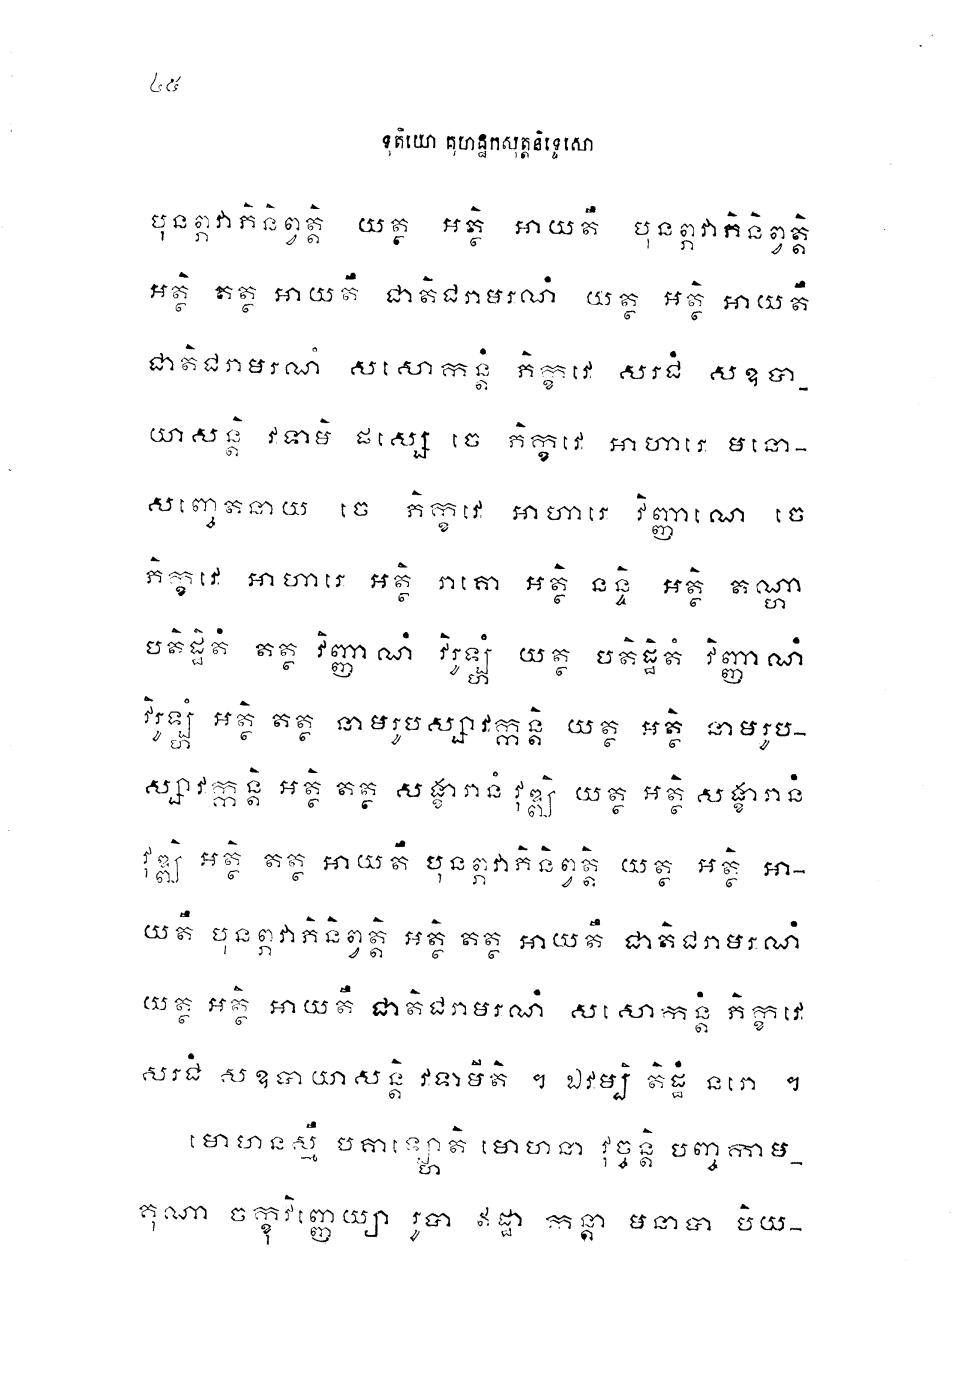 ៤៥
ទុតិយោ គុហដ្ឋកសុត្តនិទ្ទេសោ
បុនព្ភវាភិនិព្វត្តិ យត្ថ អត្ថិ អាយតឹ បុនព្ភវាភិនិព្វត្តិ
អត្ថិ តត្ថ អាយតឹ ជាតិជរាមរណំ យត្ថ អត្ថិ អាយតឹ
ជាតិជរាមរណំ សសោកន្តំ ភិក្ខវេ សរជំ សឧបា_
យាសន្តិ វទាមិ ផស្សេ ចេ ភិក្ខវេ អាហារេ មនោ_
សញ្ចេតនាយ ចេ ភិក្ខវេ អាហារេ វិញ្ញាណេ ចេ
ភិក្ខវេ អាហារេ អត្ថិ រាគោ អត្ថិ នន្ទិ អត្ថិ តណ្ហា
បតិដ្ឋិតំ តត្ថ វិញ្ញាណំ វិរូឡ្ហំ យត្ថ បតិដ្ឋិតំ វិញ្ញាណំ
វិរូឡ្ហំ អត្ថិ តត្ថ នាមរូបស្សាវក្កន្តិ យត្ថ អត្ថិ នាមរូប_
ស្សាវក្កន្តិ អត្ថិ តត្ថ សង្ខារានំ វុឌ្ឍិ យត្ថ អត្ថិ សង្ខារានំ
វុឌ្ឍិ អត្ថិ តត្ថ អាយតឹ បុនព្ភវាភិនិព្វត្តិ យត្ថ អត្ថិ អា_
យតឹ បុនព្ភវាភិនិព្វត្តិ អត្ថិ តត្ថ អាយតឹ ជាតិជរាមរណំ
យត្ថ អត្ថិ អាយតឹ ជាតិជរាមរណំ សសោកន្តំ ភិក្ខវេ
សរជំ សឧបាយាសន្តិ វទាមីតិ ។ ឯវម្បិ តិដ្ឋំ នរោ ។
មោហនស្មឹ បគាឡ្ហោតិ មោហនា វុច្ចន្តិ បញ្ចកាម_
គុណា ចក្ខុវិញ្ញេយ្យា រូបា ឥដ្ឋា កន្តា មនាបា បិយ_